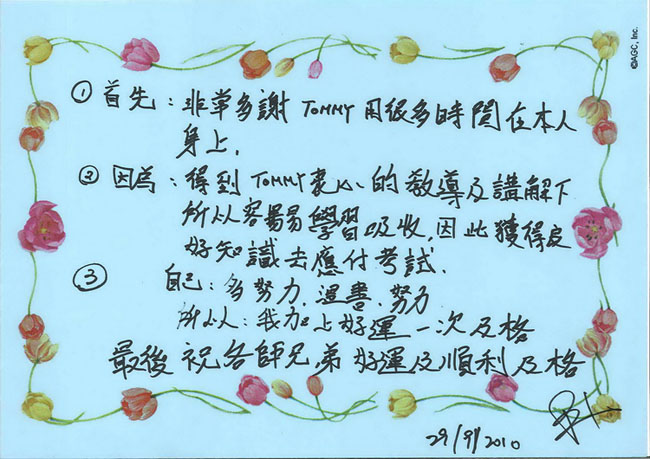 ©AGC, Inc.
①首先：非常多謝 TOMMY 用很多時間在本人
身上.
②因為：得到 TOMMY衷心的教導及講解下
所以容易學習吸收,因此獲得良
好知識去應付考試.
③ 自己：多努力,溫書,努力
所以：我加上好運一次及格
最後祝各師兄弟好運及順利及格
29/9/2010